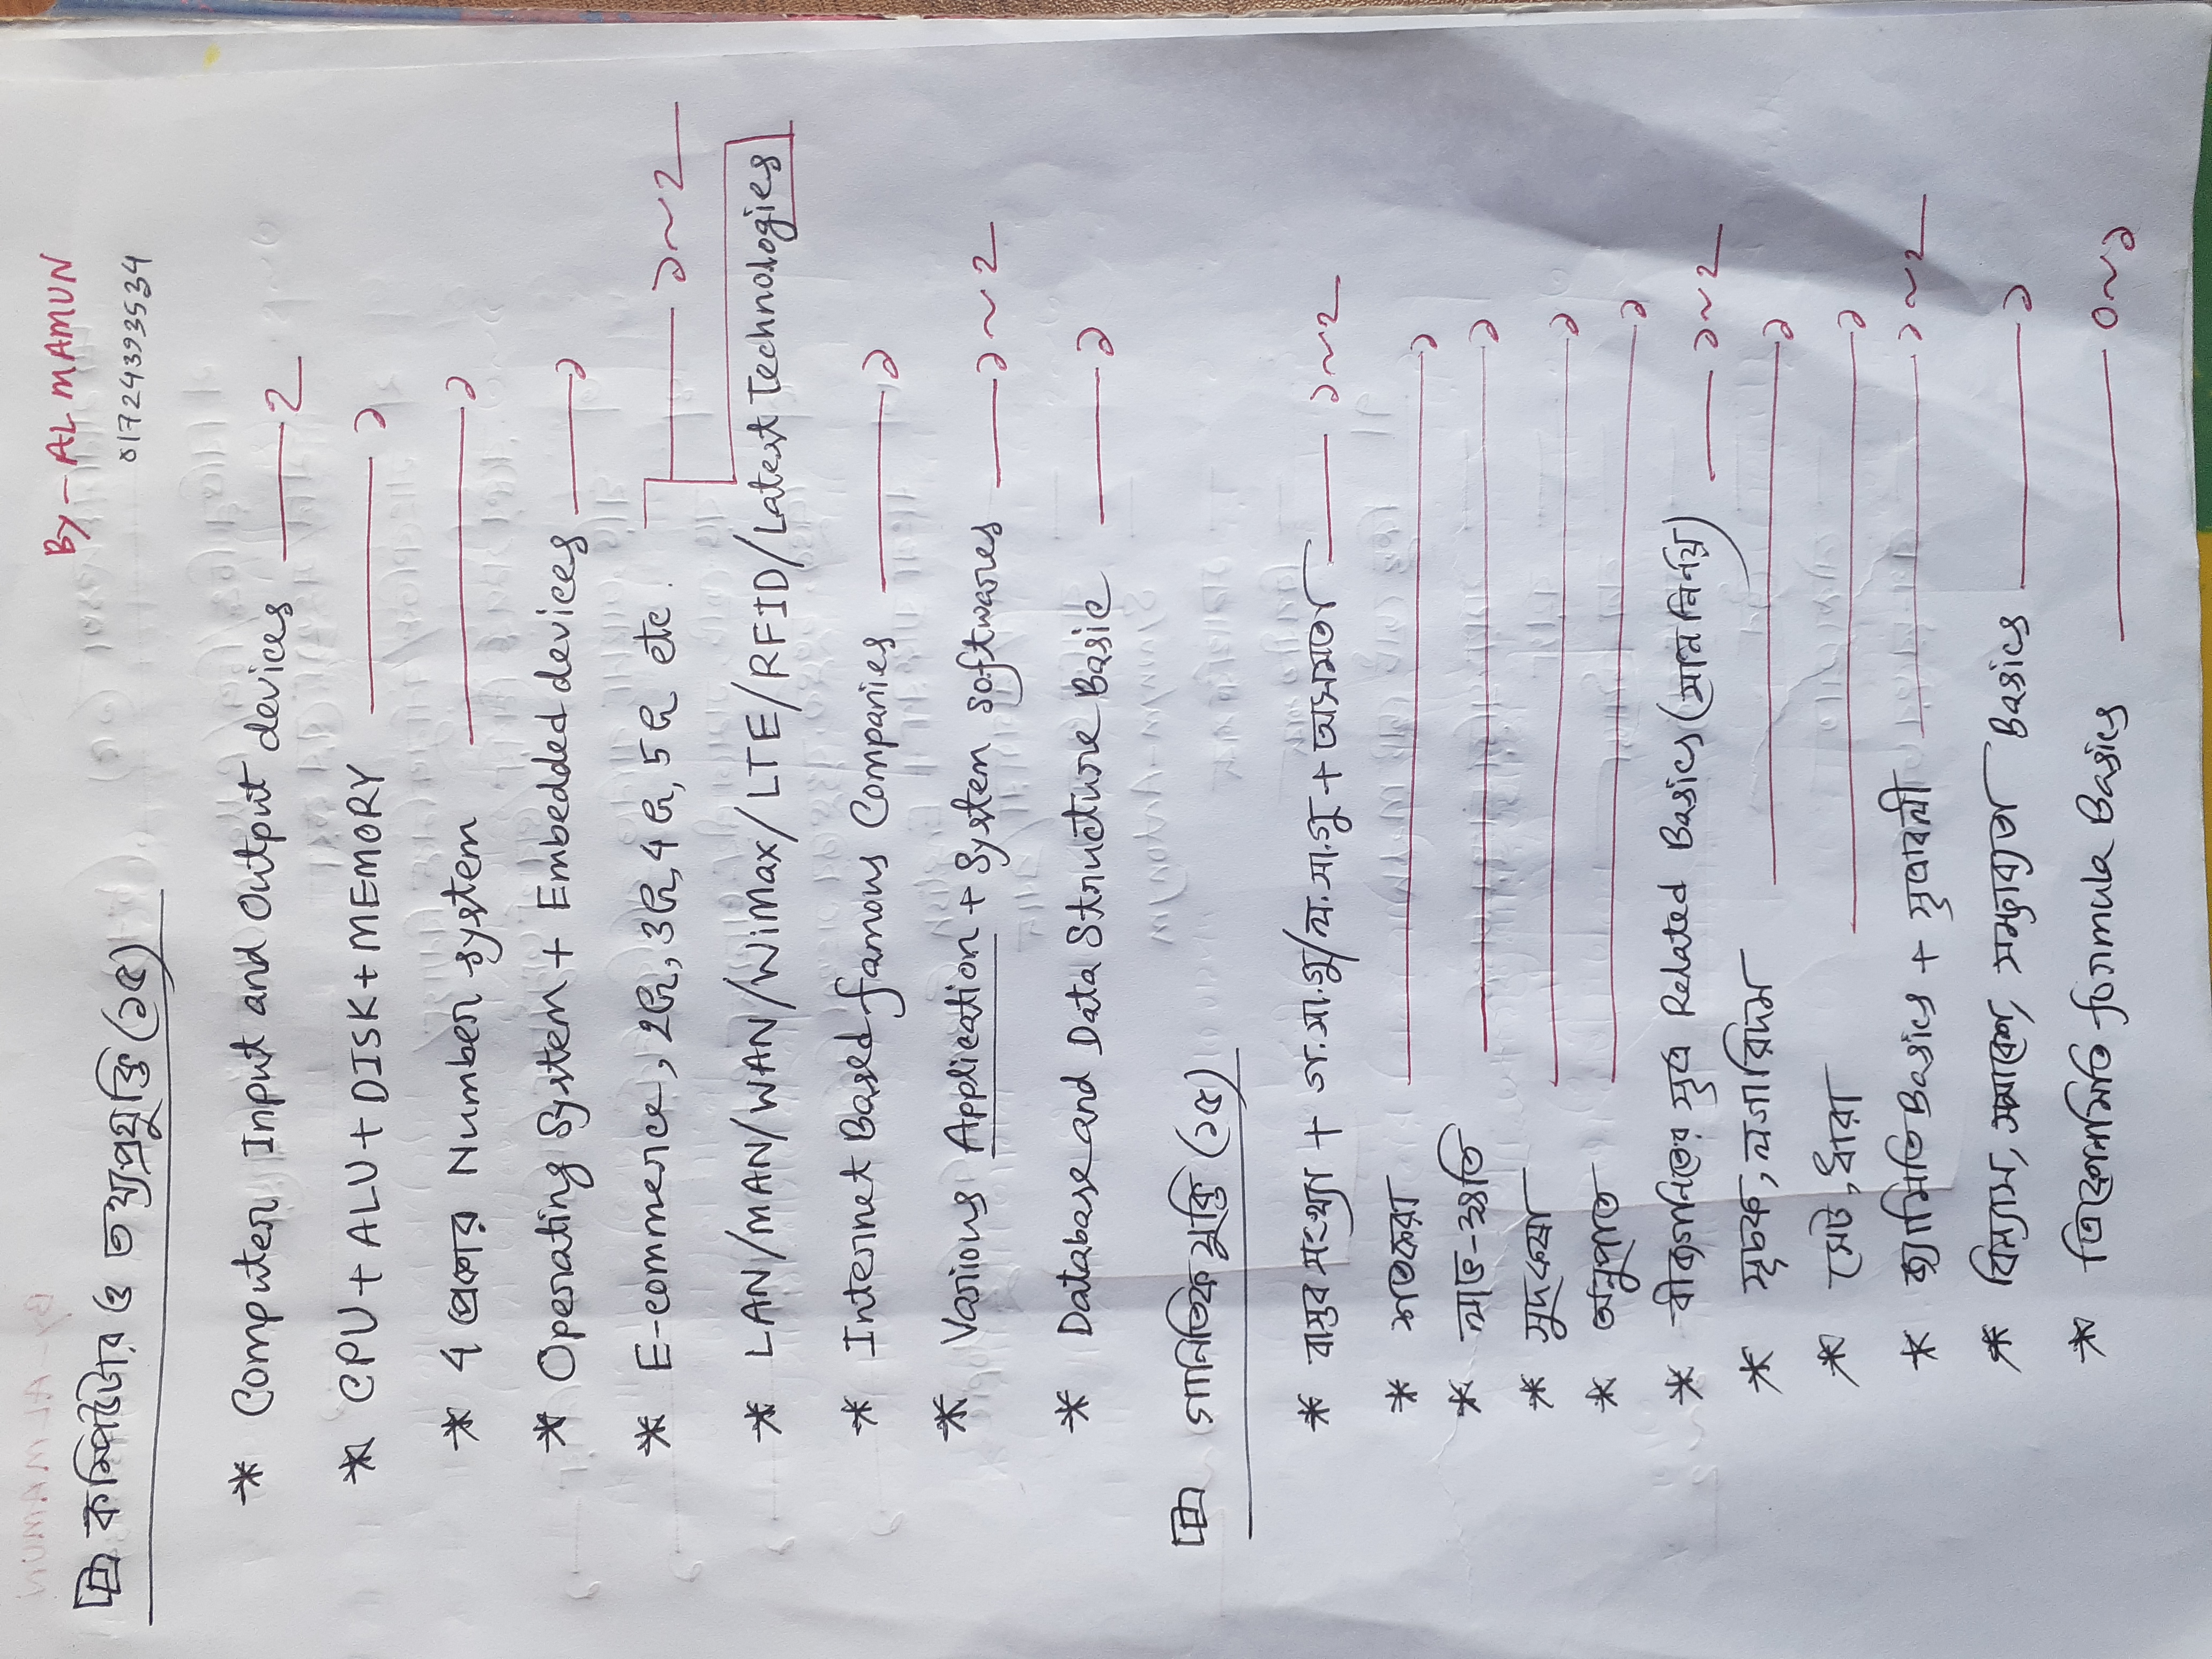 By - AL MAMUN
01724393534
কম্পিউটার ও তথ্যপ্রযুক্তি (১৫)
* Computer Input and Output devices — 2
* CPU + ALU + DISK + MEMORY — ১
* 4 প্রকার Number system — ১
* Operating System + Embedded devices — ১
* E-commerce, 2জি, 3জি, 4জি, 5জি etc — ১~2
* LAN/MAN/WAN/WiMax/LTE/RFID/Latest Technologies
* Internet Based famous Companies — ১
* Various Application + System softwares — ১~2
* Database and Data Structure Basic — ১
গানিতিক যুক্তি (১৫)
* বাস্তব সংখ্যা + গ.সা.গু/ল.সা.গু + অসমতা — ১~2
* শতকরা — ১
* লাভ-ক্ষতি — ১
* সুদকষা — ১
* অনুপাত — ১
* বীজগনিতের সূত্র Related Basics (মান নির্ণয়) — ১~2
* সূচক, লগারিদম — ১
* সেট, ধারা — ১
* জ্যামিতি Basics + সূত্রাবলী — ১~2
* বিন্যাস, সমাবেশ, সম্ভাব্যতা Basics — ১
* ত্রিকোণমিতি formula Basics — 0~১